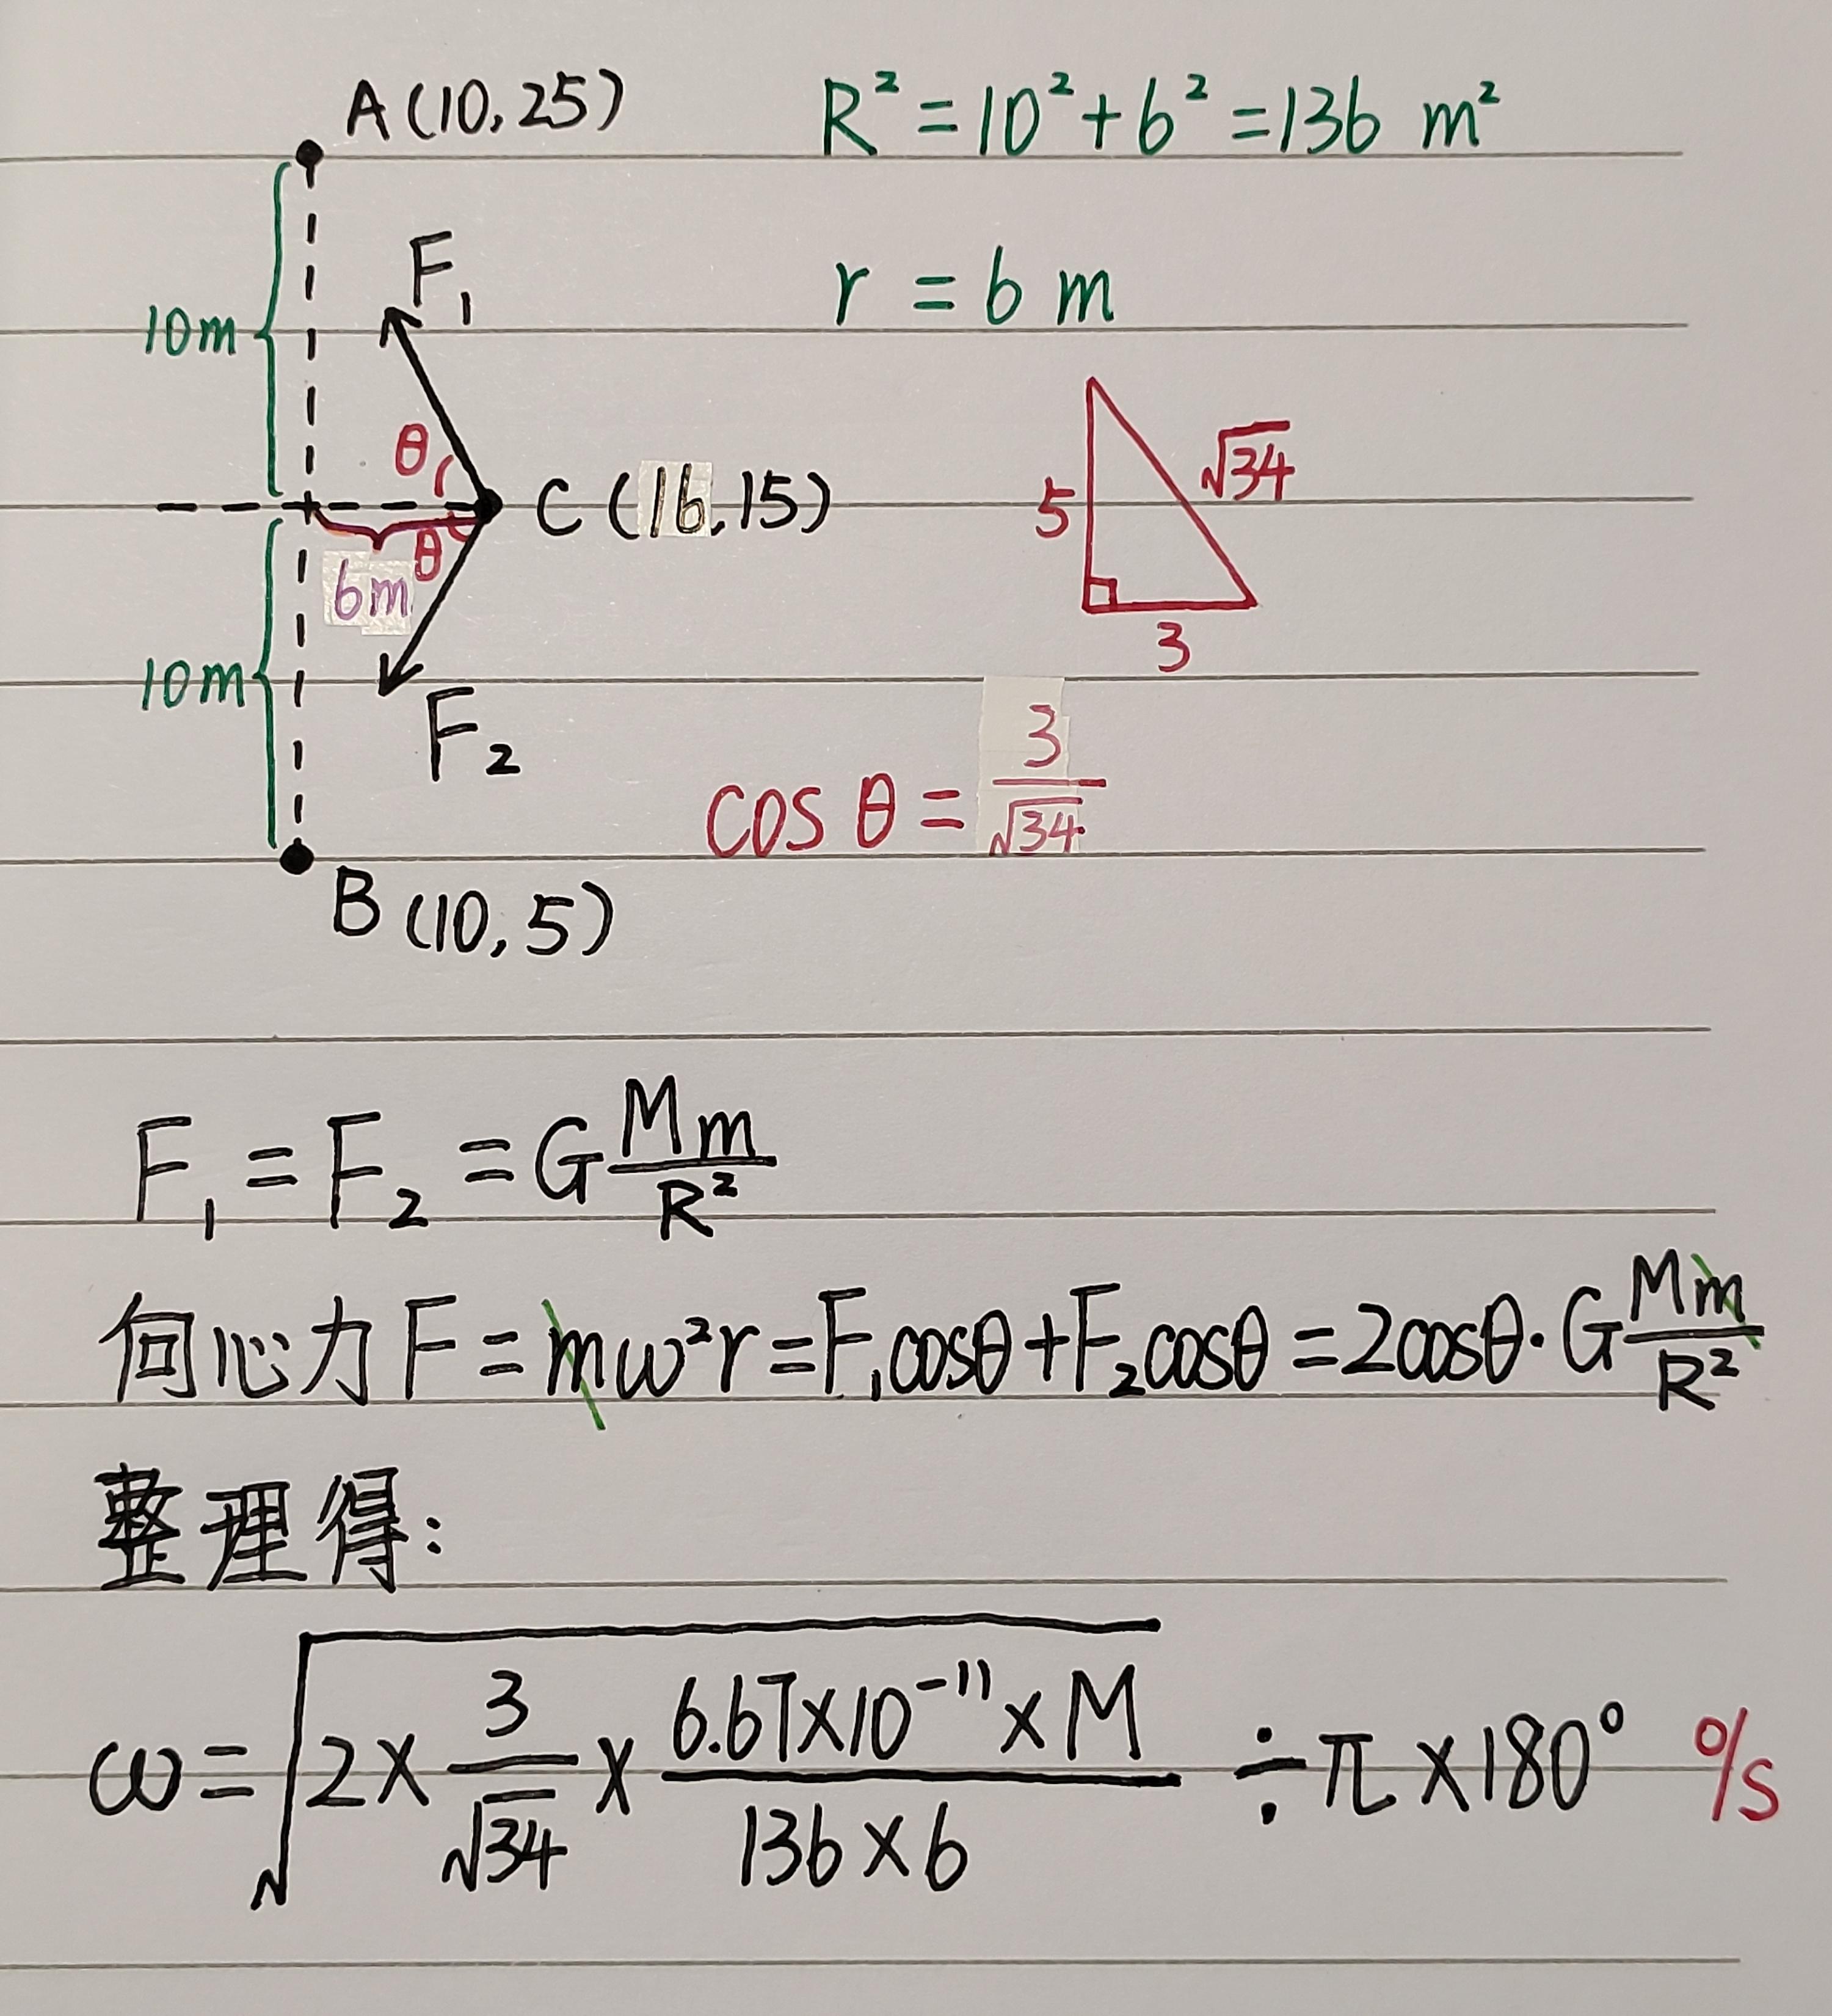 A(10,25)
R² = 10² + 6² = 136 m²
F₁
r = 6 m
10m
θ
√34
5
C (16.15)
θ
6m
3
10m
F₂
cos θ = 3/√34
B (10,5)
F₁ = F₂ = G Mm/R²
向心力 F = mω²r = F₁cosθ + F₂cosθ = 2cosθ · G Mm/R²
整理得:
ω = √(2 × 3/√34 × 6.67×10⁻¹¹×M/136×6) ÷ π × 180° °/s